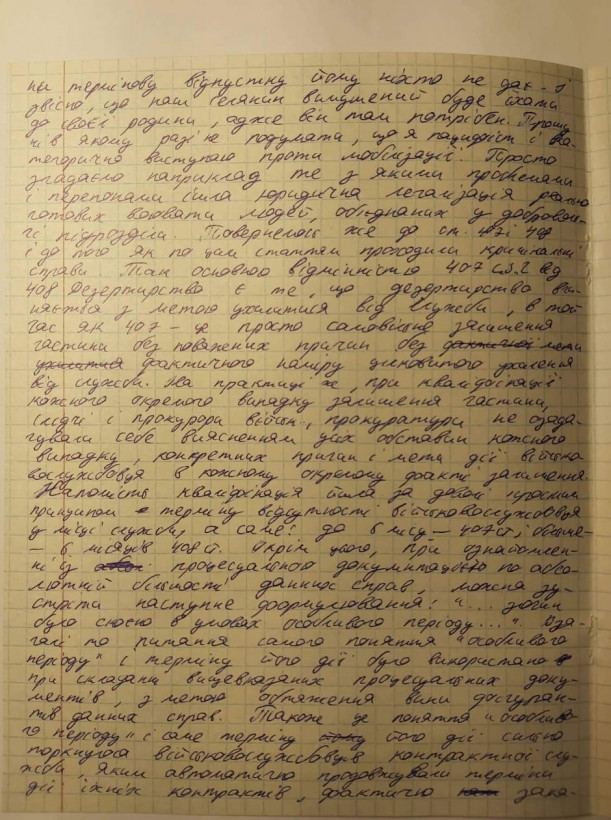 ни термінову відпустку йому ніхто не дає - і
звісно, що наш селянин вимушений буде їхати
до своєї родини, адже він там потрібен. Прошу
ні в якому разі не подумати, що я пацифіст і ка-
тегорично виступаю проти мобілізації. Просто
згадаємо наприклад те з якими проблемами
і перепонами йшла юридична легалізація реально
готових воювати людей, об'єднаних у доброволь-
чі підрозділи. Повернемось же до ст. 407 і 408
і до того як по цим статтям проходили кримінальні
справи. Так основною відмінністю 407 від
408 Дезертирство є те, що дезертирство вчи-
няється з метою ухилитися від служби, в той
час як 407 - це просто самовільне залишення
частини без поважних причин без фактичної мети
ухилитися фактичного наміру цілковитого ухилення
від служби. На практиці ж, при кваліфікації
кожного окремого випадку залишення частини,
слідчі і прокурори військ. прокуратури не озада-
чували себе виясненням усіх обставин кожного
випадку, конкретних причин і мети дії військо-
вослужбовця в кожному окремому факті залишення.
Натомість кваліфікація йшла за деяким простим
принципом - терміну відсутності військовослужбовця
у місці служби, а саме: до 6 місу - 407 ст, більше
- 6 місяців 408 ст. Окрім цього, при ознайомлен-
ні із процесуальною документацією по абсо-
лютній більшості даних справ, можна зу-
стріти наступне формулювання: "... злочин
було скоєно в умовах особливого періоду...". Вза-
галі то питання самого поняття "особливого
періоду" і терміну його дії було використано
при складанні вищевказаних процесуальних доку-
ментів, з метою обтяження вини фігуран-
тів даних справ. Також це поняття "особливо-
го періоду" і саме терміну його дії сильно
торкнулося військовослужбовців контрактної слу-
жби, яким автоматично продовжували терміни
дії їхніх контрактів, фактично зако-